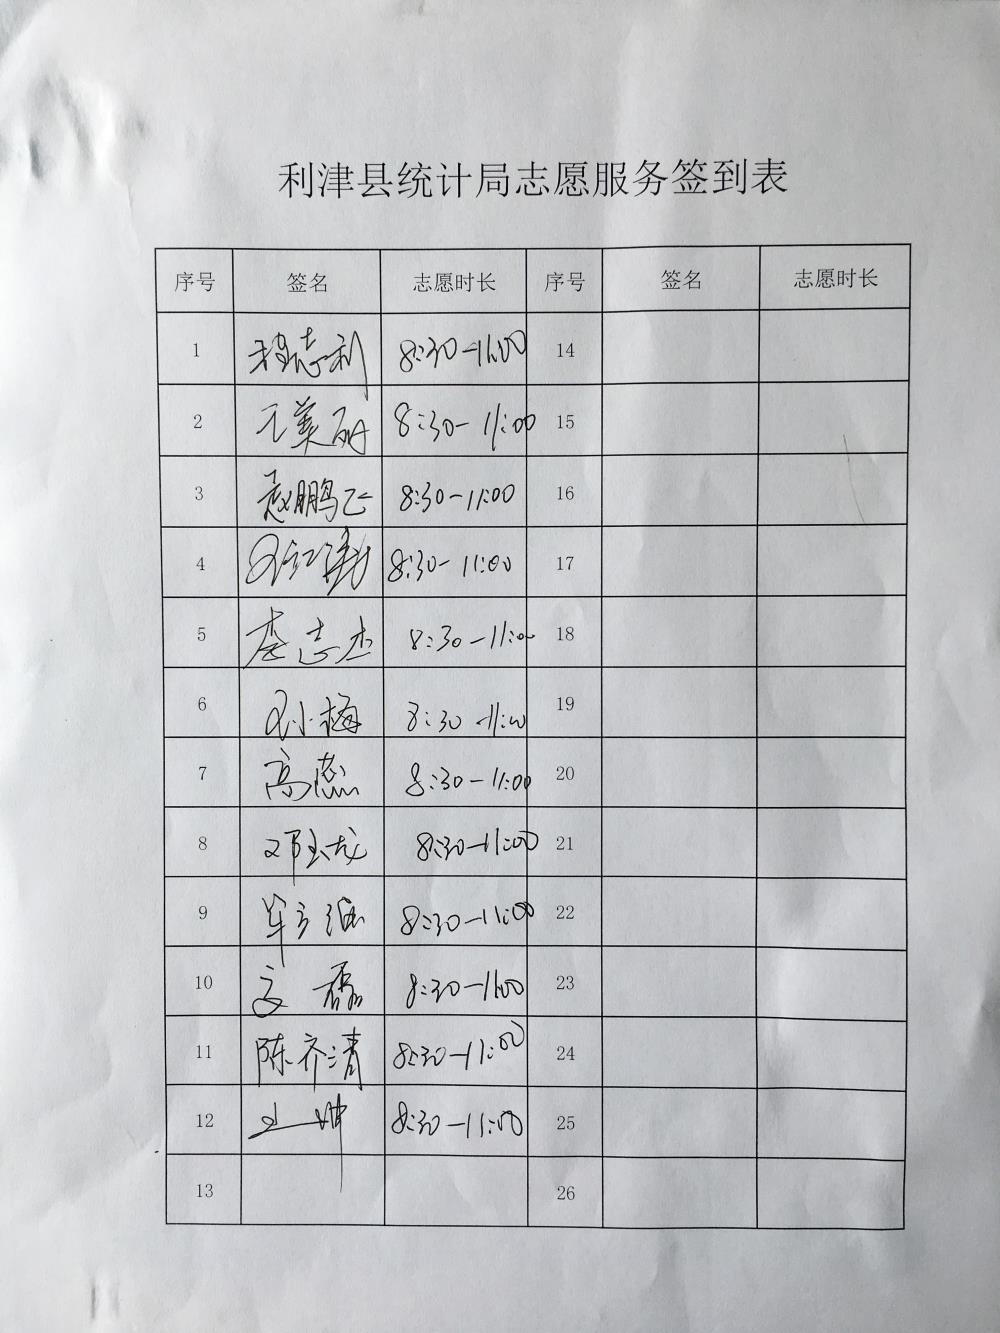 利津县统计局志愿服务签到表
序号 签名 志愿时长 序号 签名 志愿时长
1 程志利 8:30-11:00 14
2 王美丽 8:30-11:00 15
3 赵鹏飞 8:30-11:00 16
4 8:30-11:00 17
5 李志杰 8:30-11:00 18
6 刘小梅 8:30-11:00 19
7 高蕊 8:30-11:00 20
8 邓玉龙 8:30-11:00 21
9 8:30-11:00 22
10 8:30-11:00 23
11 陈齐清 8:30-11:00 24
12 王坤 8:30-11:00 25
13 26